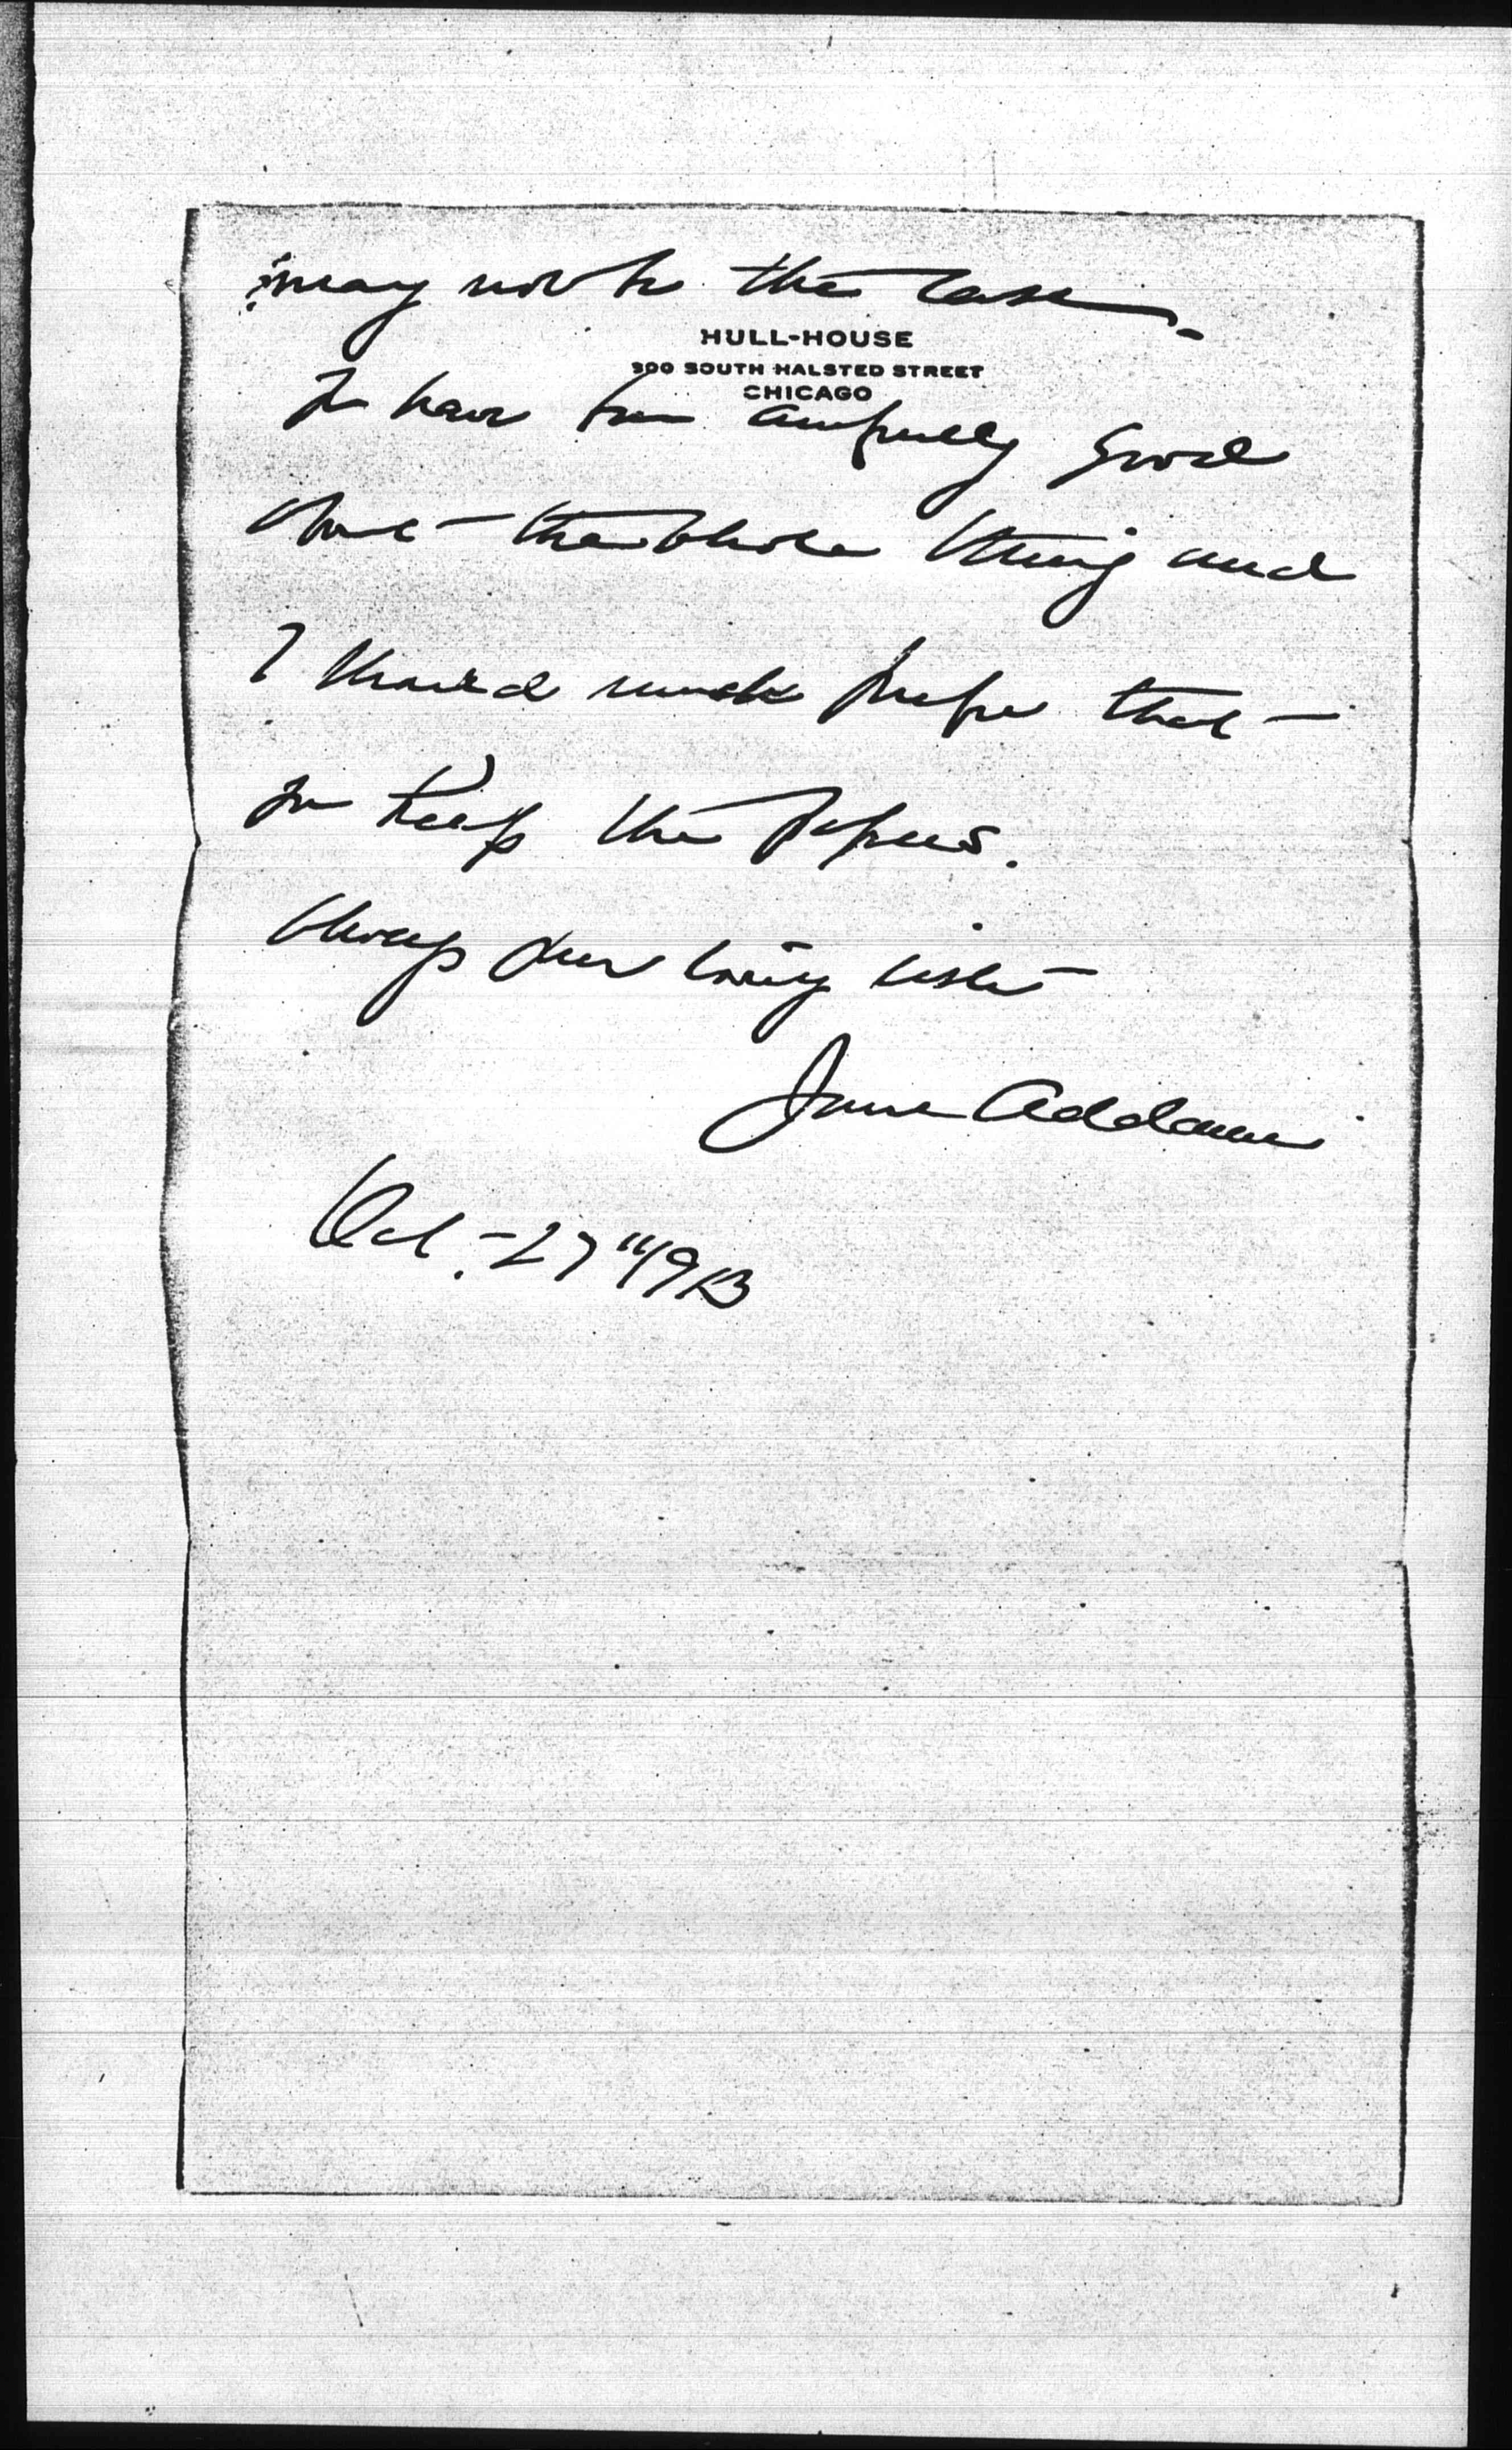 may not be the case.
HULL-HOUSE
800 SOUTH HALSTED STREET
CHICAGO
You have been awfully good
about the whole thing and
I should much prefer that
you keep the papers.
Always your loving sister
Jane Addams
Oct. 27" 1913